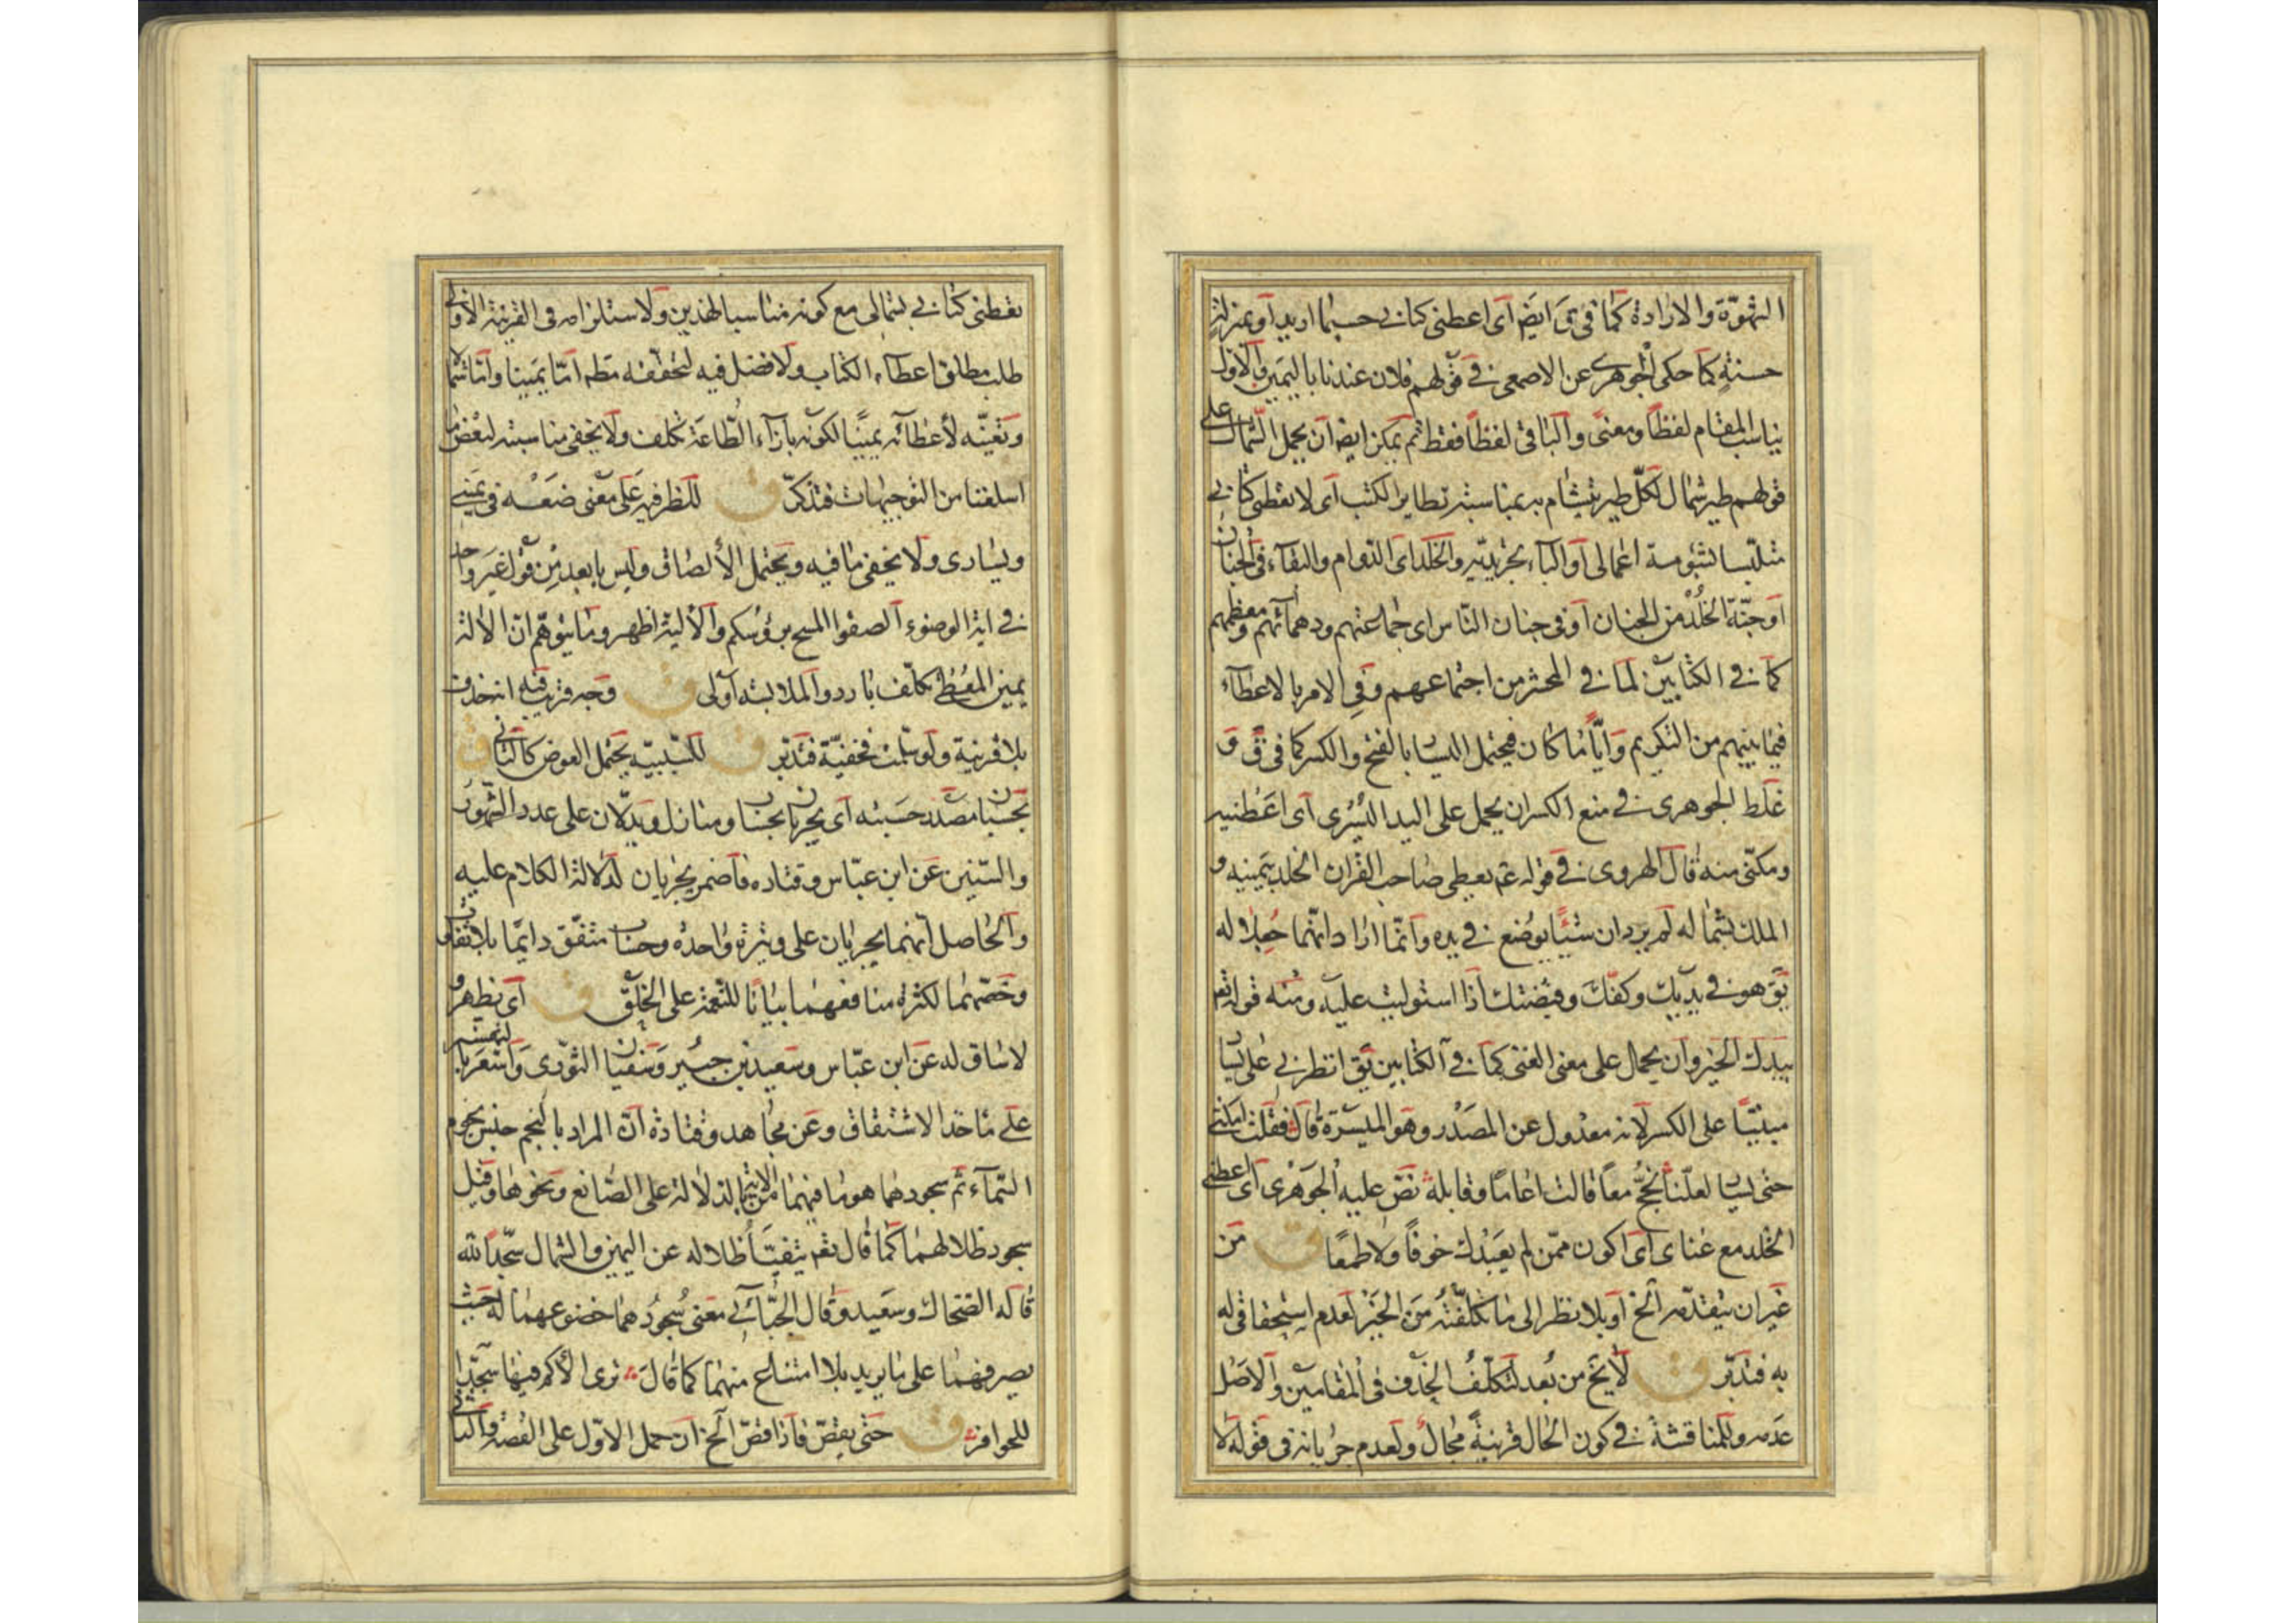 الشهوة والارادة كما في ق ايض اي اعطني كتابي حسبما اريد او بمنزلة
حسنة كما حكى الجوهري عن الاصمعي في قولهم فلان عندنا باليمين والاول
يناسب المقام لفظا ومعنى والباقي لفظا فقط ثم يمكن ايض ان يحمل الشمال على
قولهم طير شمال لكل طير يتشام به بمناسبة تطاير الكتب اي لا تعطني كتابي
متلبسا بشومة اعمالي او الباء تجريدية والخلد اي الدوام والبقاء في الجنان
او جنة الخلد من الجنان او في جنان الناس اي جماعتهم ودهمائهم ومعظمهم
كما في الكتابين لما في المحشر من اجتماعهم وفي الامر بالاعطاء
فيما بينهم من التكريم وايا ما كان فيحتمل اليسار بالفتح والكسر كما في ق و
غلط الجوهري في منع الكسر ان يحمل على اليد اليسرى اي اعطنيه
ومكني منه قال الهروي في قوله ع يعطى صاحب القران الخلد بيمينه و
الملك بشماله لم يرد ان شيئا يوضع في يده وانما اراد انهما جعلا له
يق هو في يديك وكفك وقبضتك اذا استوليت عليه ومنه قوله تعم
بيدك الخير وان يحمل على معنى الغنى كما في الكتابين يق انظرني على يسار
مبنيا على الكسر لانه معدول عن المصدر وهو الميسرة قال فقلت امكثي
حتى يسار لعلنا نحج معا قالت اعاما وقابله نص عليه الجوهري اي اعطني
الخلد مع غناي اي اكون ممن لم يعبدك خوفا ولا طمعا ق من
غير ان يتقدمه الخ او بلا نظر الى ما تكلفته من الخير لعدم استحقاقي له
به فتدبر ق لا يخ من بعد لتكلف الحذف في المقامين والاصل
عدمه وللمناقشة في كون الحال قرينة مجال ولعدم جريانه في قوله لا
تعطني كتابي بشمالي مع كونه مناسبا لهذين ولاستلزامه في القرينة الاولى
طلب مطلق اعطاء الكتاب ولا فضل فيه لتحققه مطه اما يمينا واما شمالا
وتعينه لاعطائه يمينا لكونه بازاء الطاعة تكلف ولا يخفى مناسبته لبعض ما
اسلفنا من التوجيهات فتذكر ق للظرفية على معنى ضعه في يميني
ويساري ولا يخفى ما فيه ويحتمل الالصاق وليس بابعد من قول غير واحد
في اية الوضوء الصقوا المسح برؤسكم والالية اظهر وما يتوهم ان الالة
يمين المعطي تكلف بارد والملابسة اولى ق وجه قريب قيله انه حذف
بلا قرينة ولو سلمت فخفية فتدبر ق للسببية يحتمل العوض كالثاني ق
بحسبان مصدر حسبته اي يجريان بحسبان ومنازل ويدلان على عدد الشهور
والسنين عن ابن عباس وقتاده فاضمر يجريان لدلالة الكلام عليه
والحاصل انهما يجريان على وتيرة واحدة وحساب متفق دايما بلا تفاوت
وخصهما لكثرة منافعهما بيانا للنعمة على الخلق ق اي نظهر و
لا ساق له عن ابن عباس وسعيد بن جبير وسفيان الثوري واستعربا لنهستر
على ماخذ الاشتقاق وعن مجاهد وقتادة ان المراد بالنجم جنس نجوم
السماء ثم سجودهما هو ما فيهما من الاية الدلالة على الصانع ونحوها وقيل
سجود ظلالهما كما قال تعم يتفيا ظلاله عن اليمين والشمال سجدا لله
قاله الضحاك وسعيد وقال الجبائي معنى سجودهما خضوعهما له حيث
يصرفهما على ما يريد بلا امتناع منهما كما قال ترى الاكم فيها سجدا
للحوافر ق حتى يقص فاذا قص الخ ان حمل الاول على القصة والثاني